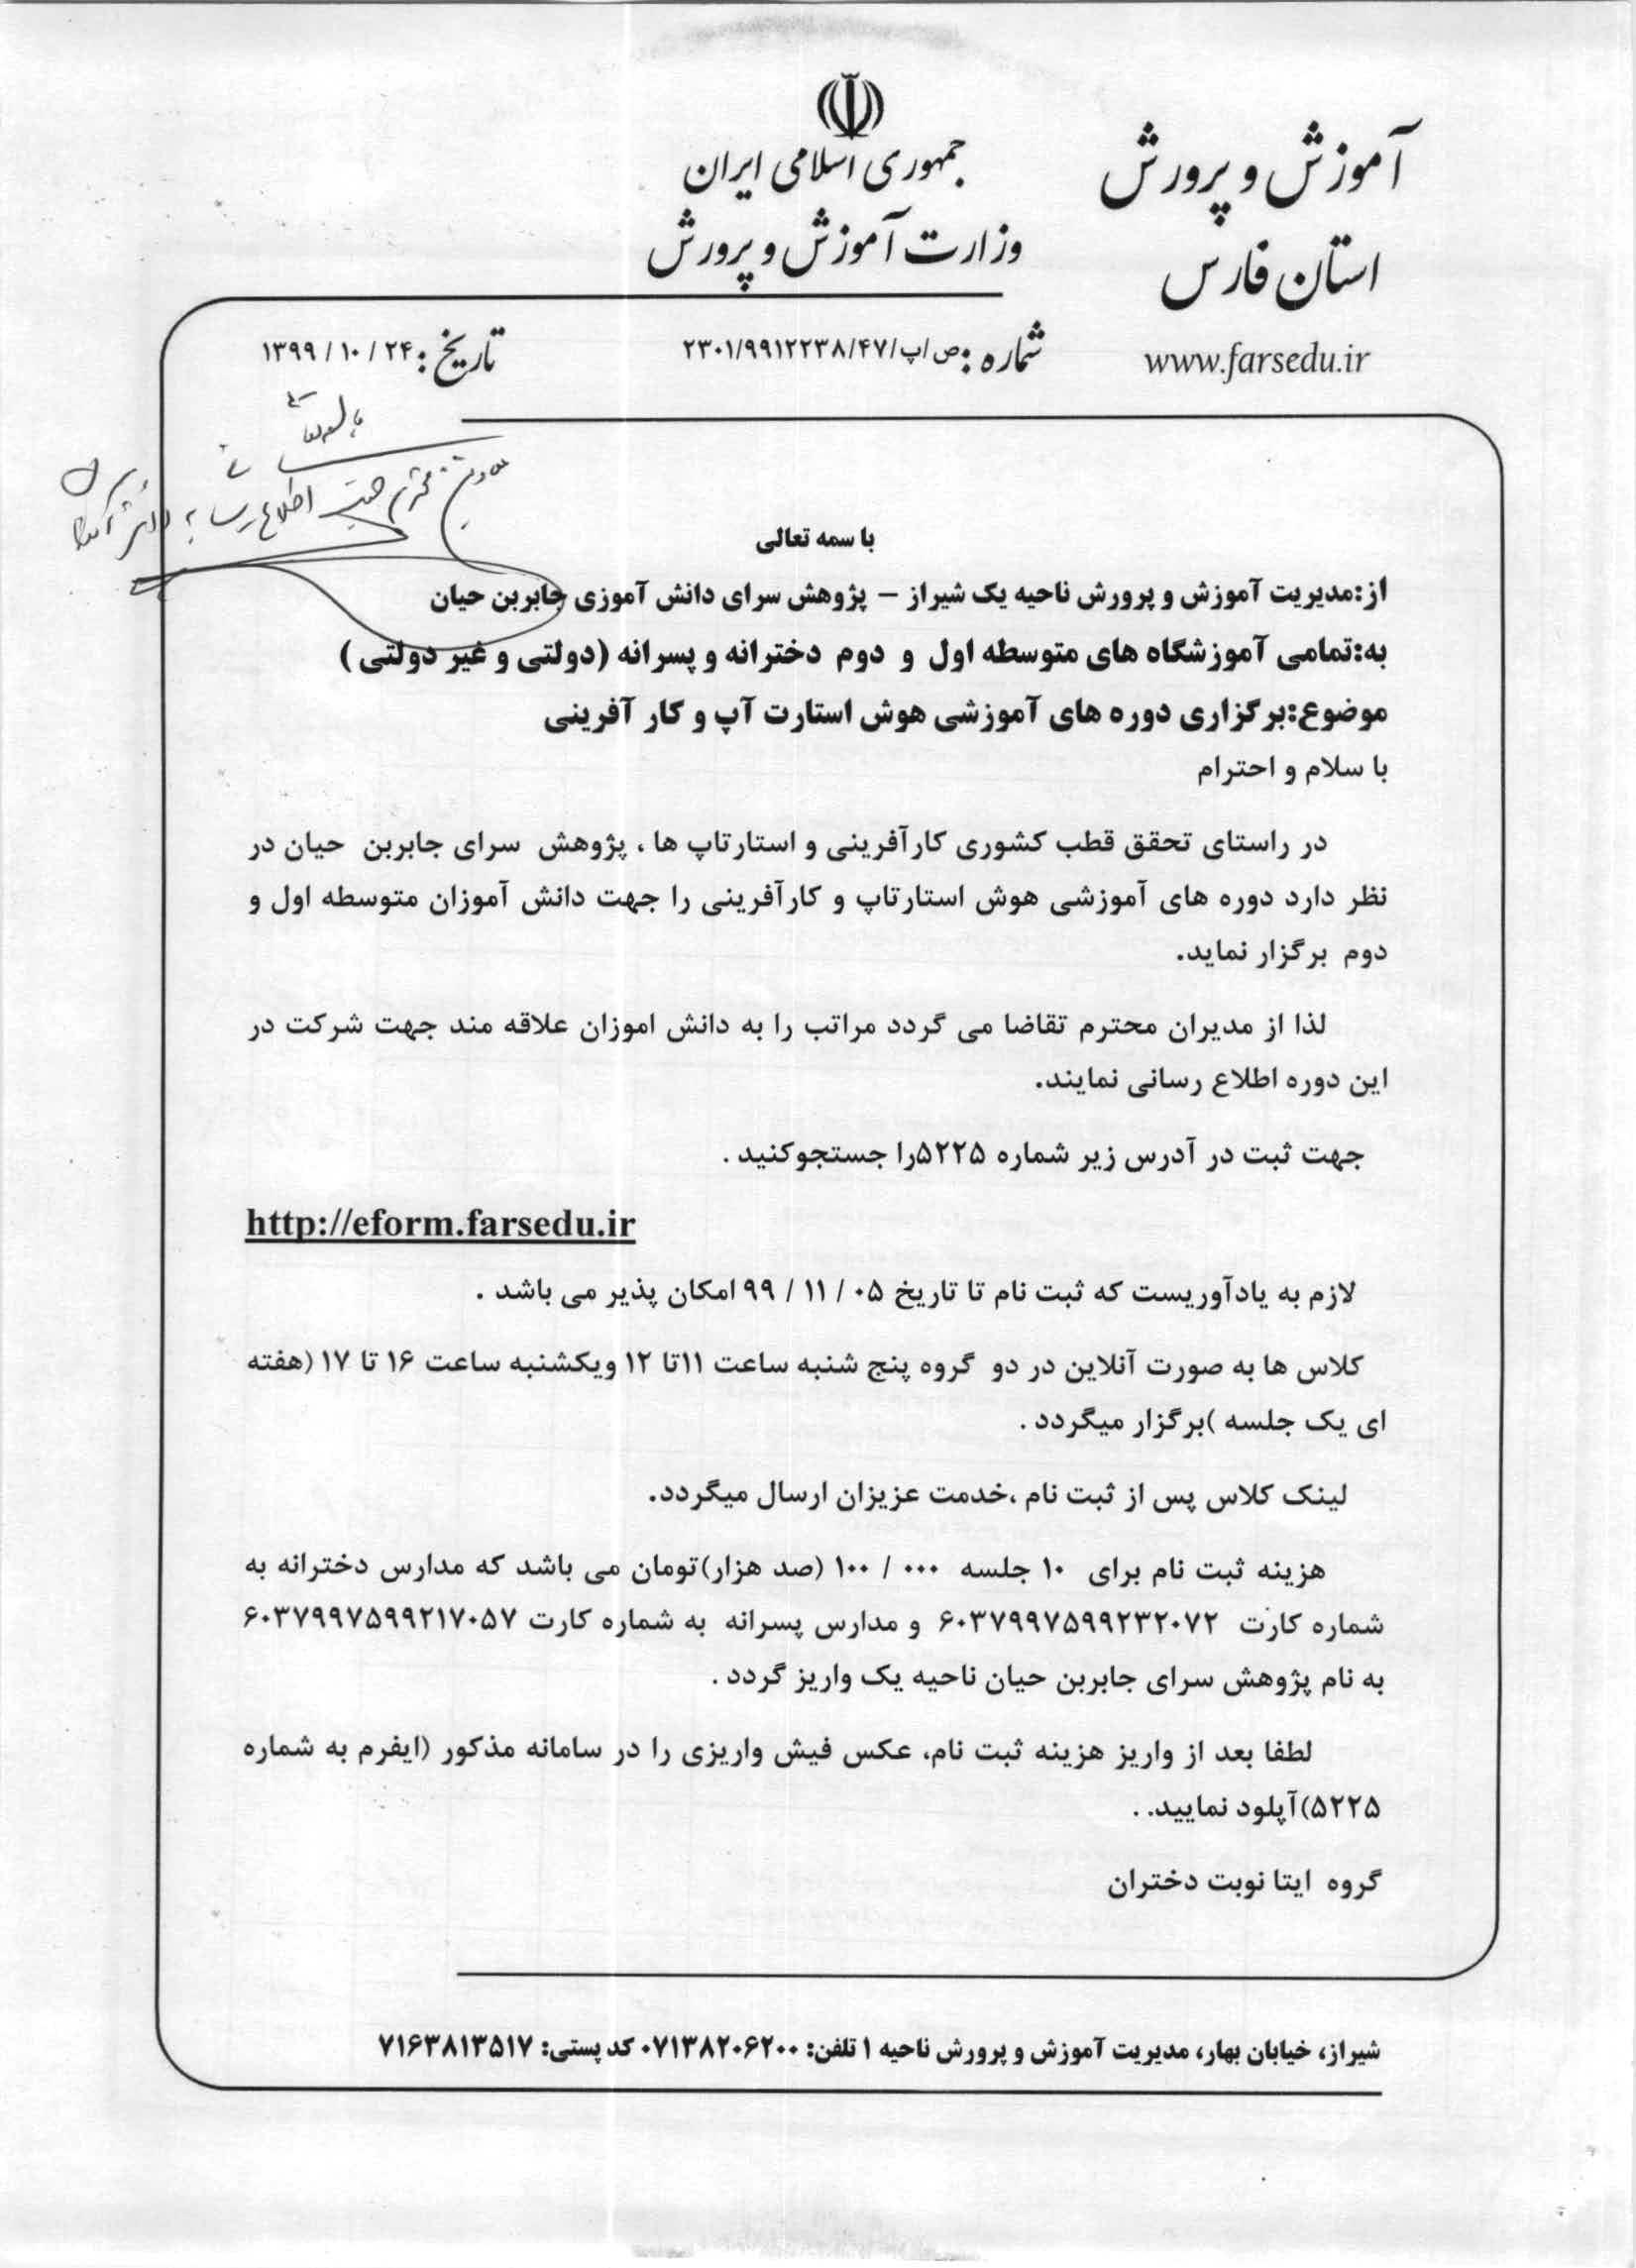 آموزش و پرورش
استان فارس
www.farsedu.ir
جمهوری اسلامی ایران
وزارت آموزش و پرورش
شماره: ص/پ/۲۳۰۱/۹۹۱۲۲۳۸/۴۷
تاریخ: ۱۳۹۹/۱۰/۲۴
محترم جهت اطلاع رسانی به دانش آموزان
با سمه تعالی
از:مدیریت آموزش و پرورش ناحیه یک شیراز – پژوهش سرای دانش آموزی جابربن حیان
به:تمامی آموزشگاه های متوسطه اول و دوم دخترانه و پسرانه (دولتی و غیر دولتی)
موضوع:برگزاری دوره های آموزشی هوش استارت آپ و کار آفرینی
با سلام و احترام
در راستای تحقق قطب کشوری کارآفرینی و استارتاپ ها ، پژوهش سرای جابربن حیان در
نظر دارد دوره های آموزشی هوش استارتاپ و کارآفرینی را جهت دانش آموزان متوسطه اول و
دوم برگزار نماید.
لذا از مدیران محترم تقاضا می گردد مراتب را به دانش اموزان علاقه مند جهت شرکت در
این دوره اطلاع رسانی نمایند.
جهت ثبت در آدرس زیر شماره ۵۲۲۵را جستجوکنید .
http://eform.farsedu.ir
لازم به یادآوریست که ثبت نام تا تاریخ ۰۵ / ۱۱ / ۹۹ امکان پذیر می باشد .
کلاس ها به صورت آنلاین در دو گروه پنج شنبه ساعت ۱۱تا ۱۲ ویکشنبه ساعت ۱۶ تا ۱۷ (هفته
ای یک جلسه )برگزار میگردد .
لینک کلاس پس از ثبت نام ،خدمت عزیزان ارسال میگردد.
هزینه ثبت نام برای ۱۰ جلسه ۰۰۰ / ۱۰۰ (صد هزار)تومان می باشد که مدارس دخترانه به
شماره کارت ۶۰۳۷۹۹۷۵۹۹۲۳۲۰۷۲ و مدارس پسرانه به شماره کارت ۶۰۳۷۹۹۷۵۹۹۲۱۷۰۵۷
به نام پژوهش سرای جابربن حیان ناحیه یک واریز گردد .
لطفا بعد از واریز هزینه ثبت نام، عکس فیش واریزی را در سامانه مذکور (ایفرم به شماره
۵۲۲۵)آپلود نمایید. .
گروه ایتا نوبت دختران
شیراز، خیابان بهار، مدیریت آموزش و پرورش ناحیه ۱ تلفن: ۰۷۱۳۸۲۰۶۲۰۰ کد پستی: ۷۱۶۳۸۱۳۵۱۷